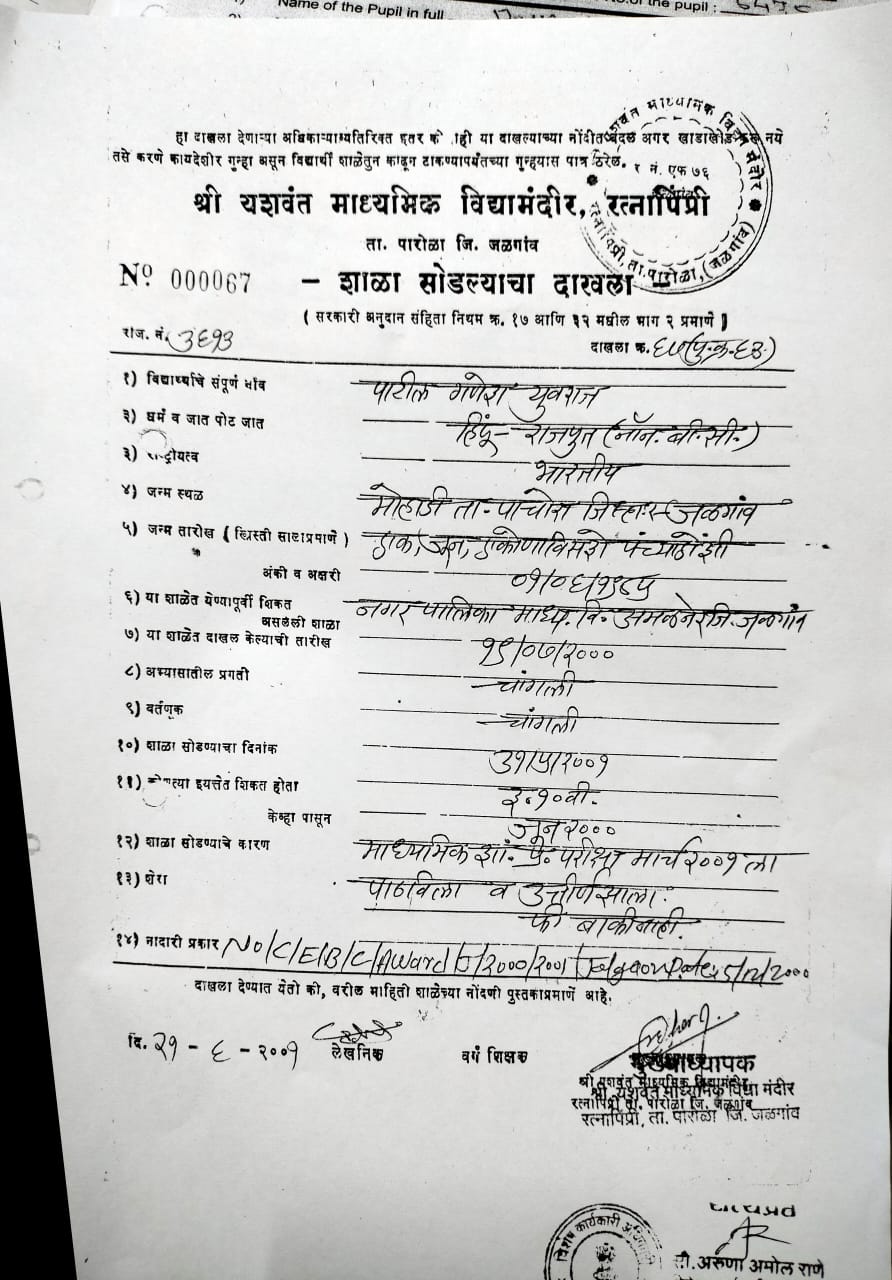 Name of the Pupil in full
of the pupil :
हा दाखला देणाऱ्या अधिकाऱ्याव्यतिरिक्त इतर को ाही या दाखल्याच्या नोंदीत बदल अगर खाडाखोड करू नये
तसे करणे कायदेशीर गुन्हा असून विद्यार्थी शाळेतुन काढून टाकण्यापर्यंतच्या गुन्ह्यास पात्र ठरेल.
र नं. एफ ७६
श्री यशवंत माध्यमिक विद्यामंदीर, रत्नापिंप्री
ता. पारोळा जि. जळगांव
यशवंत माध्यमिक विद्या मंदीर
रत्नापिंप्री, ता. पारोळा, (जळगांव)
Nº 000067 – शाळा सोडल्याचा दाखला –
( सरकारी अनुदान संहिता नियम क्र. १७ आणि ३२ मधील भाग २ प्रमाणे )
रजि. नं. ३६१३ दाखला क्र. ६७(पु.क्र.६३)
१) विद्यार्थ्याचे संपूर्ण नांव पाटील गणेश युवराज
२) धर्म व जात पोट जात हिंदू- राजपुत (नॉन. बी. सी.)
३) राष्ट्रीयत्व भारतीय
४) जन्म स्थळ मोहाडी ता- पाचोरा जिल्हा- जळगांव
५) जन्म तारीख ( ख्रिस्ती सालाप्रमाणे ) एक, जून, एकोणाविसशे पंच्याऐंशी
अंकी व अक्षरी ०१/०६/१९८५
६) या शाळेत येण्यापूर्वी शिकत नगर पालिका माध्य. वि. अमळनेर जि. जळगांव
असलेली शाळा
७) या शाळेत दाखल केल्याची तारीख १९/०७/२०००
८) अभ्यासातील प्रगती चांगली
९) वर्तणूक चांगली
१०) शाळा सोडण्याचा दिनांक ३१/५/२००१
११) कोणत्या इयत्तेत शिकत होता इ. १० वी.
केव्हा पासून जून २०००
१२) शाळा सोडण्याचे कारण माध्यमिक शा. प्र. परीक्षा मार्च २००१ ला
१३) शेरा पाठविला व उत्तीर्ण झाला.
फी बाकी नाही.
१४) नादारी प्रकार No/C/E/B/C/Award/ /2000/2001
दाखला देण्यात येतो की, वरील माहिती शाळेच्या नोंदणी पुस्तकाप्रमाणें आहे.
दि. २१ - ६ - २००१ लेखनिक वर्ग शिक्षक मुख्याध्यापक
श्री यशवंत माध्यमिक विद्यामंदीर
श्री. यशवंत माध्यमिक विद्या मंदीर
रत्नापिंप्री ता. पारोळा जि. जळगांव
रत्नापिंप्री, ता. पारोळा जि. जळगांव
सत्यप्रत
विशेष कार्यकारी अधिकारी
सौ. अरुणा अमोल राणे